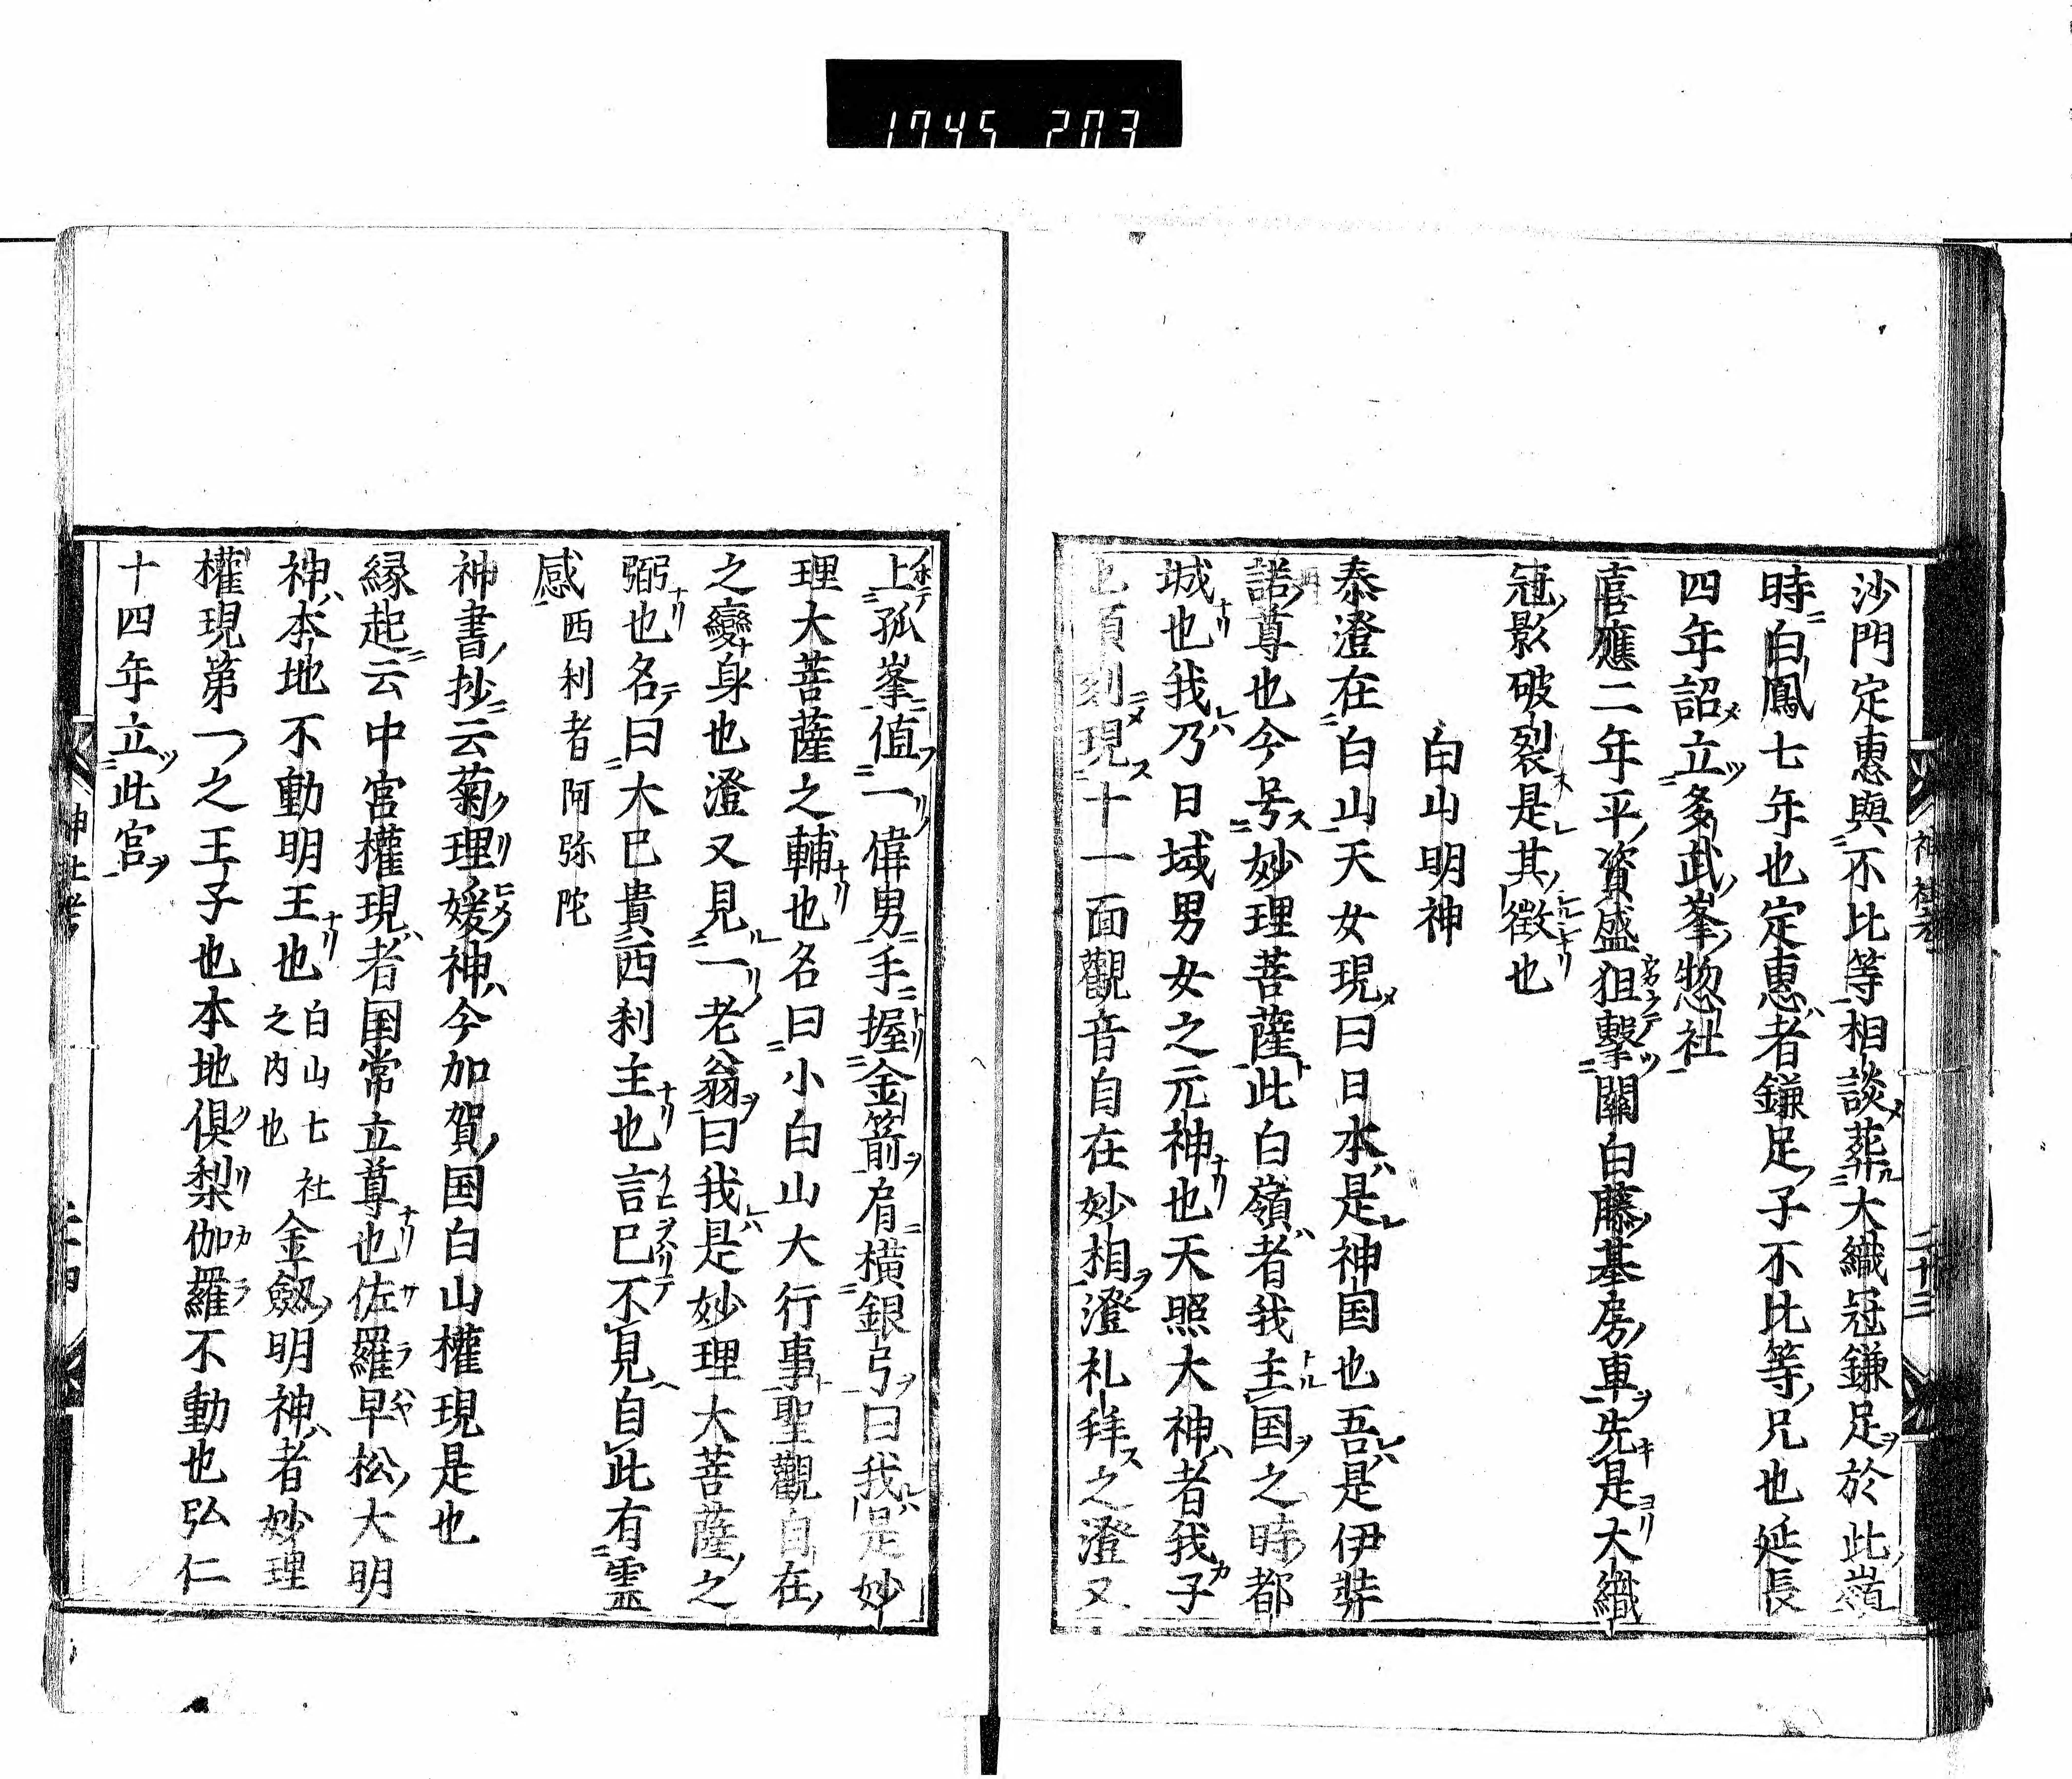 1745 203
沙門定惠與不比等相談葬大織冠鎌足於此嶺
時白鳳七年也定惠者鎌足子不比等兄也延長
四年詔立多武峯惣社
喜應二年平資盛狙擊關白藤基房車先是大織
冠影破裂是其徴也
白山明神
泰澄在白山天女現曰日本是神国也吾是伊弉
諾尊也今号妙理菩薩此白嶺者我主国之時都
城也我乃日域男女之元神也天照大神者我子
也頃刻現十一面觀音自在妙相澄礼拜之澄又
上孤峯值一偉男手握金箭肩橫銀弓曰我是妙
理大菩薩之輔也名曰小白山大行事聖觀自在
之變身也澄又見一老翁曰我是妙理大菩薩之
弼也名曰大已貴西刹主也言已不見自此有霊
感西刹者阿弥陀
神書抄云菊理媛神今加賀国白山權現是也
縁起云中宮權現者国常立尊也佐羅早松大明
神本地不動明王也白山七社之内也金劔明神者妙理
權現第一之王子也本地俱梨伽羅不動也弘仁
十四年立此宮